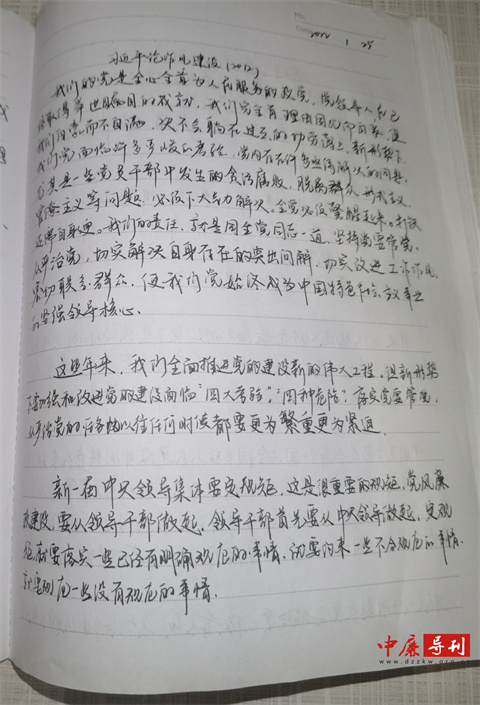 2022 1 25
习近平论作风建设（2012）
我们的党是全心全意为人民服务的政党，党领导人民已
经取得举世瞩目的成就，我们完全有理由因此而自豪，但
我们自豪而不自满，决不会躺在过去的功劳簿上，新形势下，
我们党面临许多严峻的考验，党内存在许多亟待解决的问题，
尤其是一些党员干部中发生的贪污腐败，脱离群众，形式主义，
官僚主义等问题，必须下大气力解决。全党必须警醒起来。打铁
还需自身硬。我们的责任，就是同全党同志一道，坚持党要管党，
从严治党，切实解决自身存在的突出问题，切实改进工作作风，
密切联系群众，使我们党始终成为中国特色社会主义事业
的坚强领导核心。
这些年来，我们全面推进党的建设新的伟大工程。但新形势
下加强和改进党的建设面临“四大考验”，“四种危险”，落实党要管党，
从严治党的任务比以往任何时候都要更为繁重更为紧迫
新一届中央领导集体要定规矩，这是很重要的规矩，党风廉
政建设，要从领导干部做起，领导干部首先要从中央领导做起，定规
矩就要落实一些已经有明确规定的事情，约束一些不合规定的事情，
规范一些没有规定的事情。
中廉导刊
www.dzzkw.org.cn